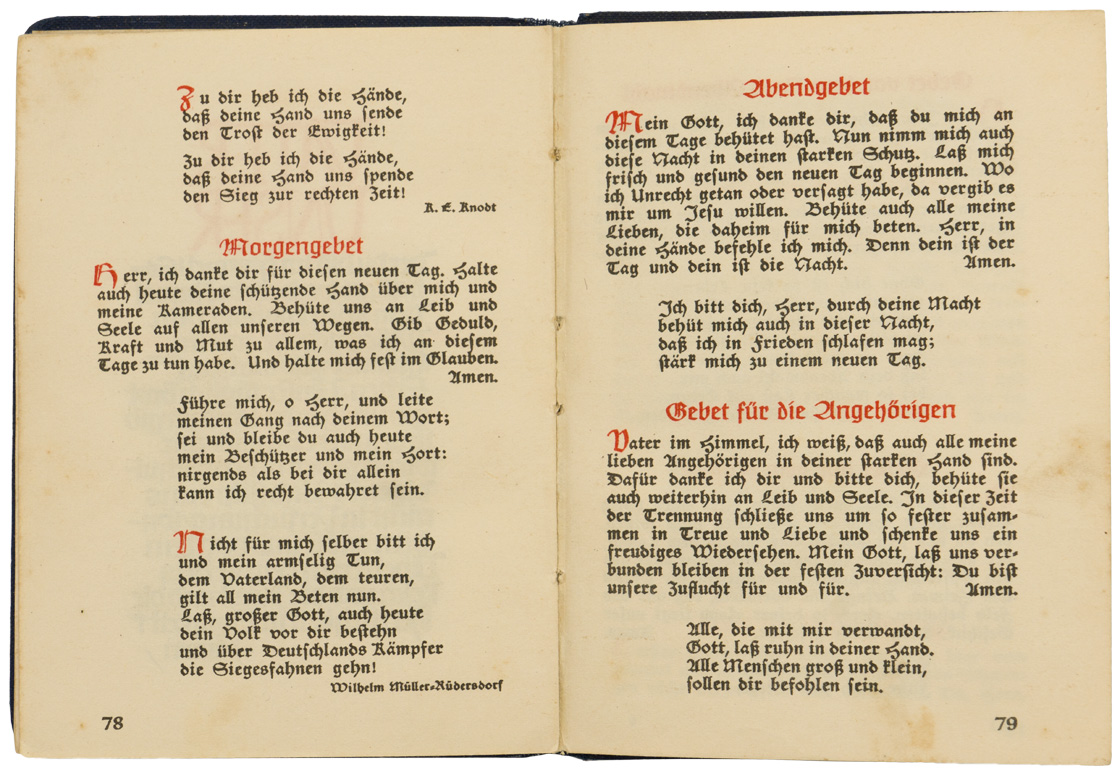 Zu dir heb ich die Hände,
daß deine Hand uns sende
den Trost der Ewigkeit!
Zu dir heb ich die Hände,
daß deine Hand uns spende
den Sieg zur rechten Zeit!
K. E. Knodt
Morgengebet
Herr, ich danke dir für diesen neuen Tag. Halte
auch heute deine schützende Hand über mich und
meine Kameraden. Behüte uns an Leib und
Seele auf allen unseren Wegen. Gib Geduld,
Kraft und Mut zu allem, was ich an diesem
Tage zu tun habe. Und halte mich fest im Glauben.
Amen.
Führe mich, o Herr, und leite
meinen Gang nach deinem Wort;
sei und bleibe du auch heute
mein Beschützer und mein Hort:
nirgends als bei dir allein
kann ich recht bewahret sein.
Nicht für mich selber bitt ich
und mein armselig Tun,
dem Vaterland, dem teuren,
gilt all mein Beten nun.
Laß, großer Gott, auch heute
dein Volk vor dir bestehn
und über Deutschlands Kämpfer
die Siegesfahnen gehn!
Wilhelm Müller-Rüdersdorf
78
Abendgebet
Mein Gott, ich danke dir, daß du mich an
diesem Tage behütet hast. Nun nimm mich auch
diese Nacht in deinen starken Schutz. Laß mich
frisch und gesund den neuen Tag beginnen. Wo
ich Unrecht getan oder versagt habe, da vergib es
mir um Jesu willen. Behüte auch alle meine
Lieben, die daheim für mich beten. Herr, in
deine Hände befehle ich mich. Denn dein ist der
Tag und dein ist die Nacht. Amen.
Ich bitt dich, Herr, durch deine Macht
behüt mich auch in dieser Nacht,
daß ich in Frieden schlafen mag;
stärk mich zu einem neuen Tag.
Gebet für die Angehörigen
Vater im Himmel, ich weiß, daß auch alle meine
lieben Angehörigen in deiner starken Hand sind.
Dafür danke ich dir und bitte dich, behüte sie
auch weiterhin an Leib und Seele. In dieser Zeit
der Trennung schließe uns um so fester zusam-
men in Treue und Liebe und schenke uns ein
freudiges Wiedersehen. Mein Gott, laß uns ver-
bunden bleiben in der festen Zuversicht: Du bist
unsere Zuflucht für und für. Amen.
Alle, die mit mir verwandt,
Gott, laß ruhn in deiner Hand.
Alle Menschen groß und klein,
sollen dir befohlen sein.
79